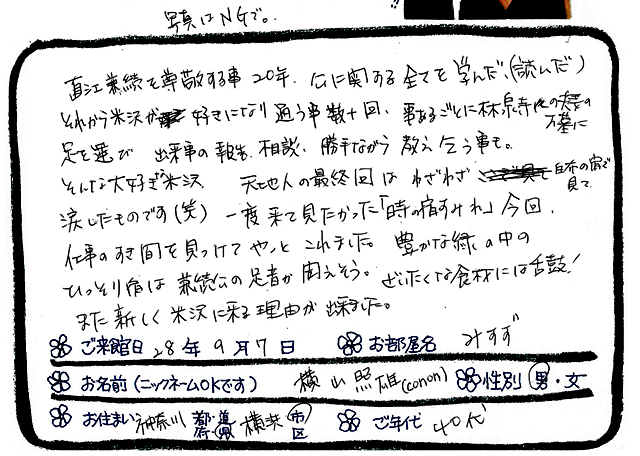 写真はNGで。
直江兼続を尊敬する事20年、公に関する全てを学んだ、(読んだ)
それから米沢が好きになり通う事数十回、事あるごとに林泉寺 公夫妻のお墓に
足を運び 出来事の報告、相談、勝手ながら教え乞う事も。
そんな大好きな米沢 天地人の最終回は わざわざ 白布の宿で見て、
涙したものです(笑) 一度来て見たかった「時の宿すみれ」今回、
仕事のすき間を見つけてやっとこれました。豊かな緑の中の
ひっそり宿は 兼続公の足音が聞えそう。ぜいたくな食材には舌鼓!
また新しく米沢に来る理由が出来ました。
ご来館日 28年 9月 7日 お部屋名 みすず
お名前(ニックネームOKです) 横山照雄(conon) 性別 男・女
お住まい 神奈川 都・道 府・県 横浜 市 区 ご年代 40代